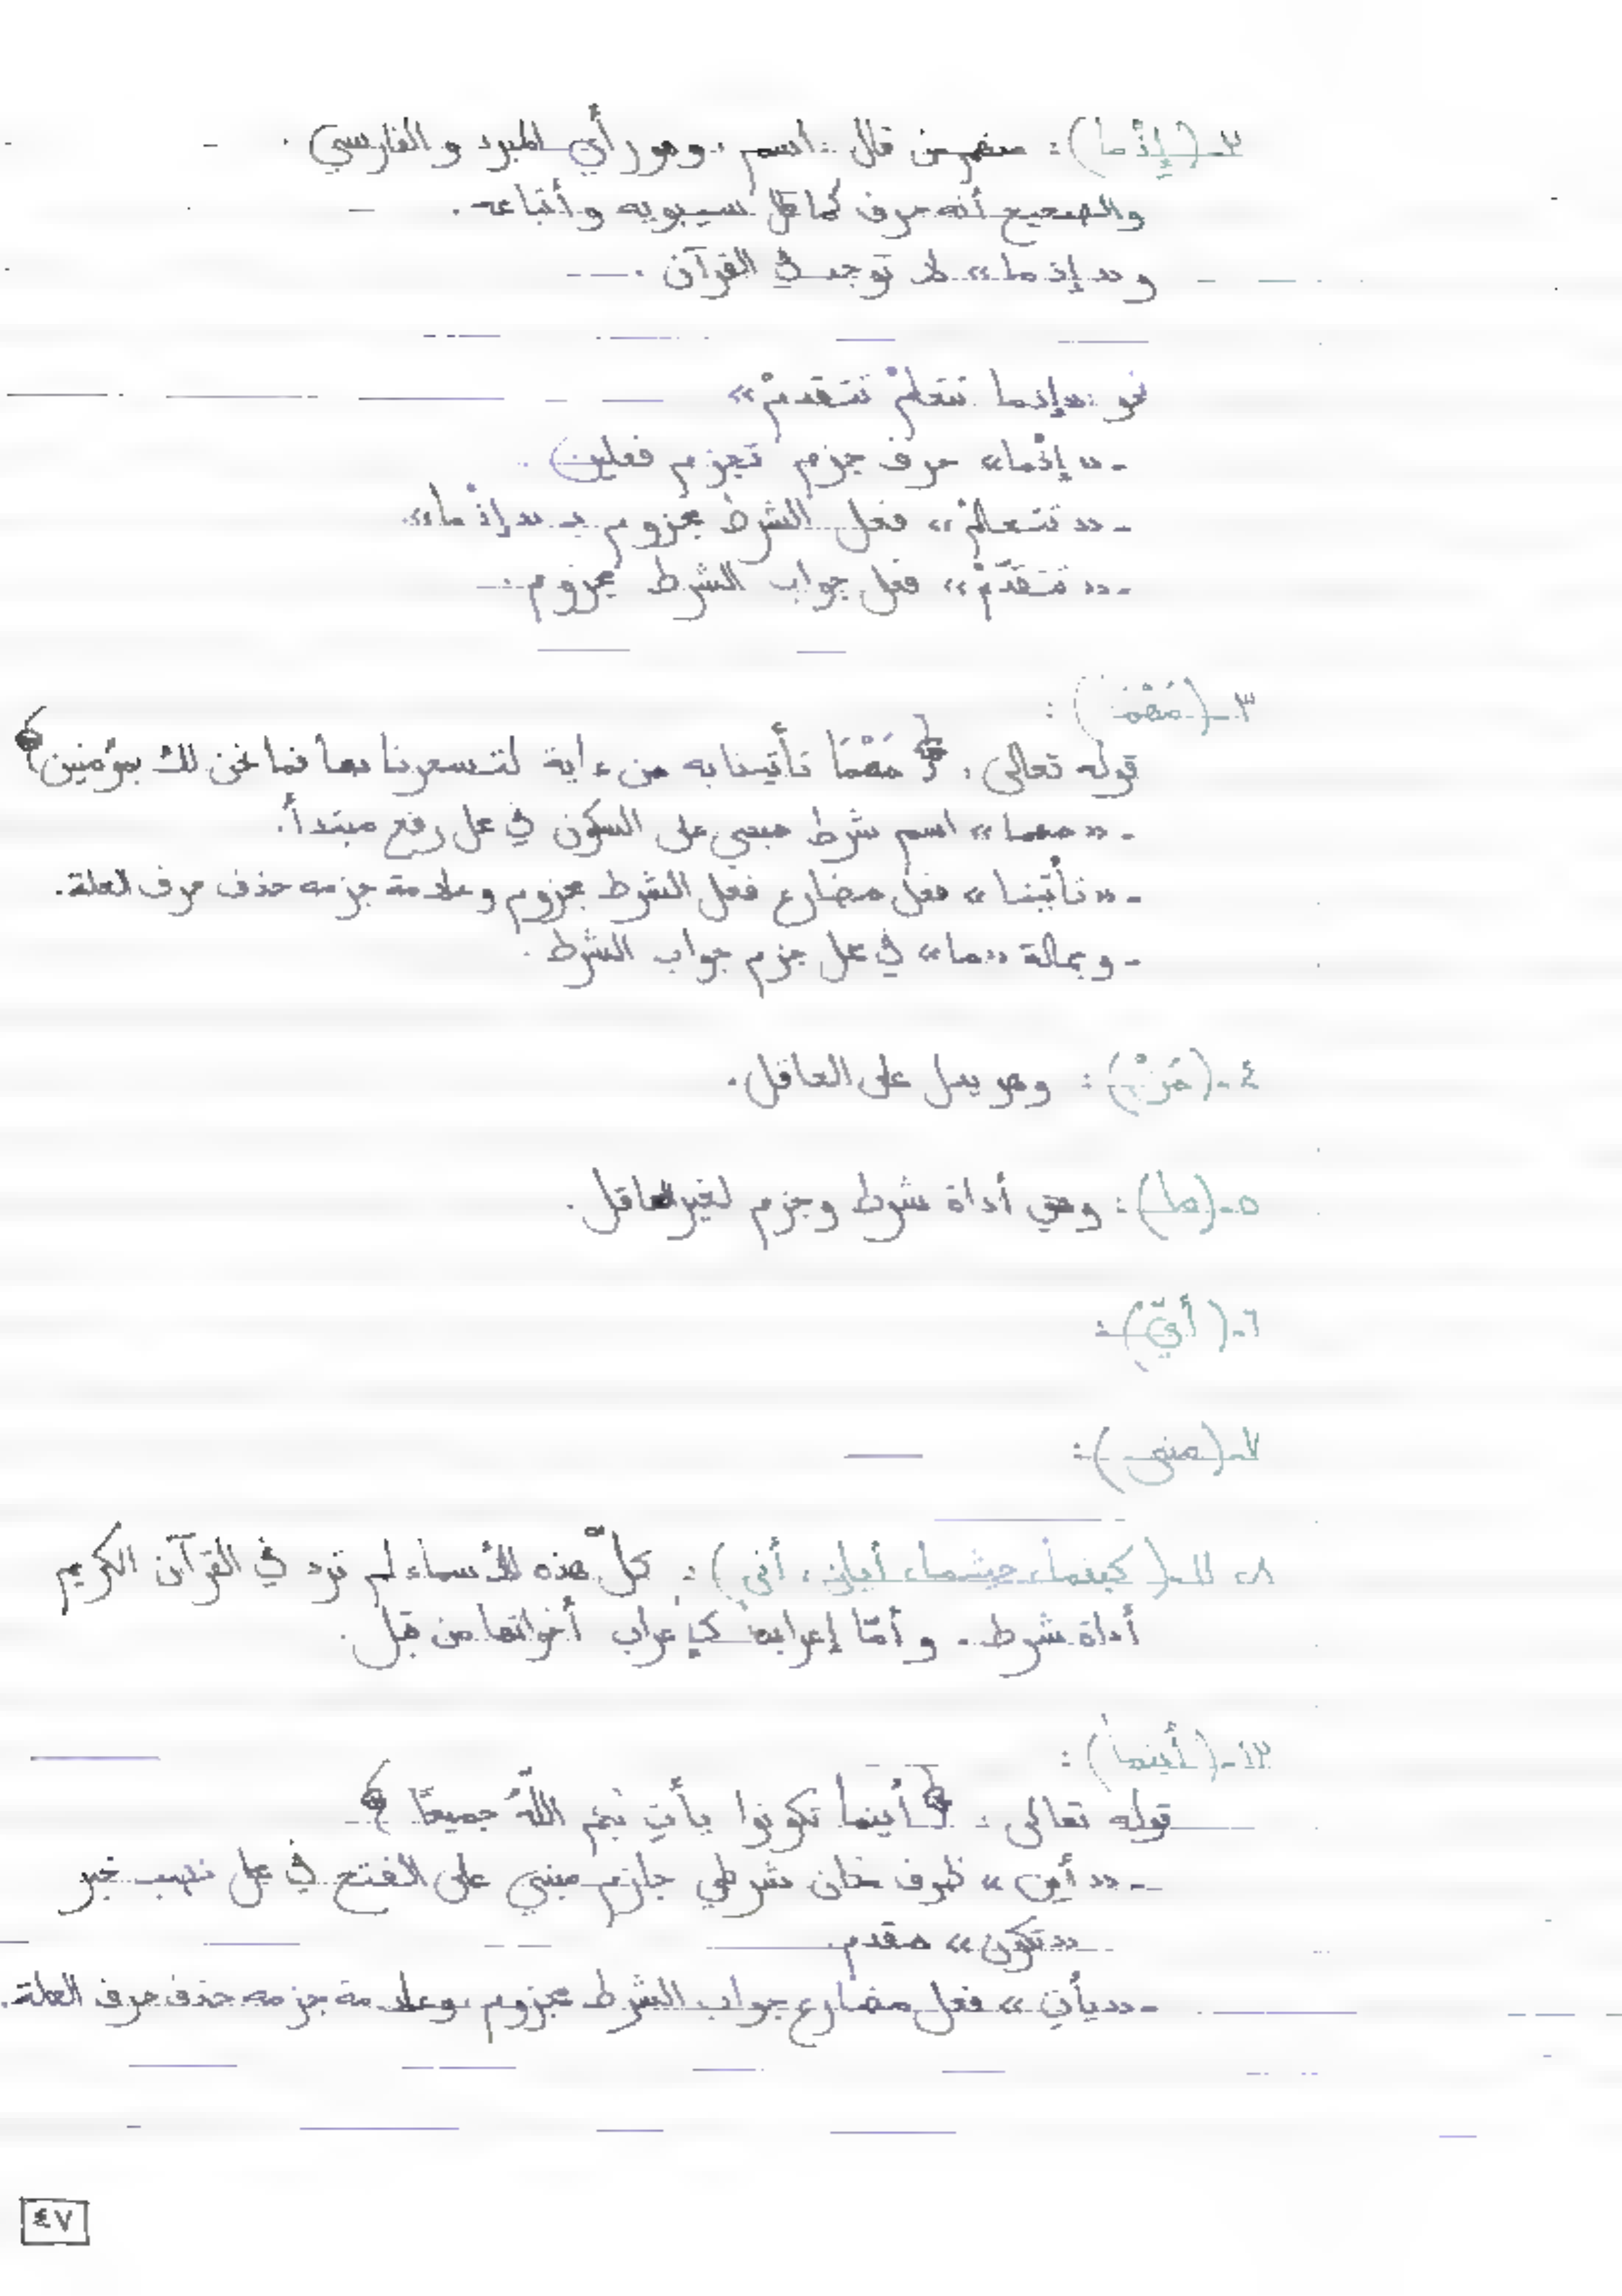 ٢-(إِذْما): منهم من قال: اسم، وهو رأي المبرد والفارسي.
والصحيح أنه حرف كما قال سيبويه وأتباعه.
و«إذما» لا توجد في القرآن.
نحو «إذما تتعلمْ تتقدمْ»
-«إذْما» حرف جزم تجزم فعلين.
-«تتعلمْ» فعل الشرط مجزوم بـ«إذْما».
-«تتقدّمْ» فعل جواب الشرط مجزوم.
٣-(مَهْمَا):
قوله تعالى: ﴿مَهْمَا تأتينا به من ءاية لتسحرنا بها فما نحن لك بمؤمنين﴾
-«مهما» اسم شرط مبني على السكون في محل رفع مبتدأ.
-«تأتينا» فعل مضارع فعل الشرط مجزوم وعلامة جزمه حذف حرف العلة.
-وجملة «ما» في محل جزم جواب الشرط.
٤-(مَنْ): وهو يدل على العاقل.
٥-(ما): وهي أداة شرط وجزم لغير العاقل.
٦-(أيّ):
٧-(متى):
٨، ١١-(كيفما، حيثما، أيان، أنى): كلّ هذه الأسماء لم ترد في القرآن الكريم
أداة شرط. وأمّا إعرابها كإعراب أخواتها من قبل.
١٢-(أينما):
قوله تعالى: ﴿أينما تكونوا يأتِ بكم اللّهُ جميعًا﴾
-«أين» ظرف مكان شرطي جازم مبني على الفتح في محل نصب خبر
«تكون» مقدم.
-«يأتِ» فعل مضارع جواب الشرط مجزوم، وعلامة جزمه حذف حرف العلة.
٤٧